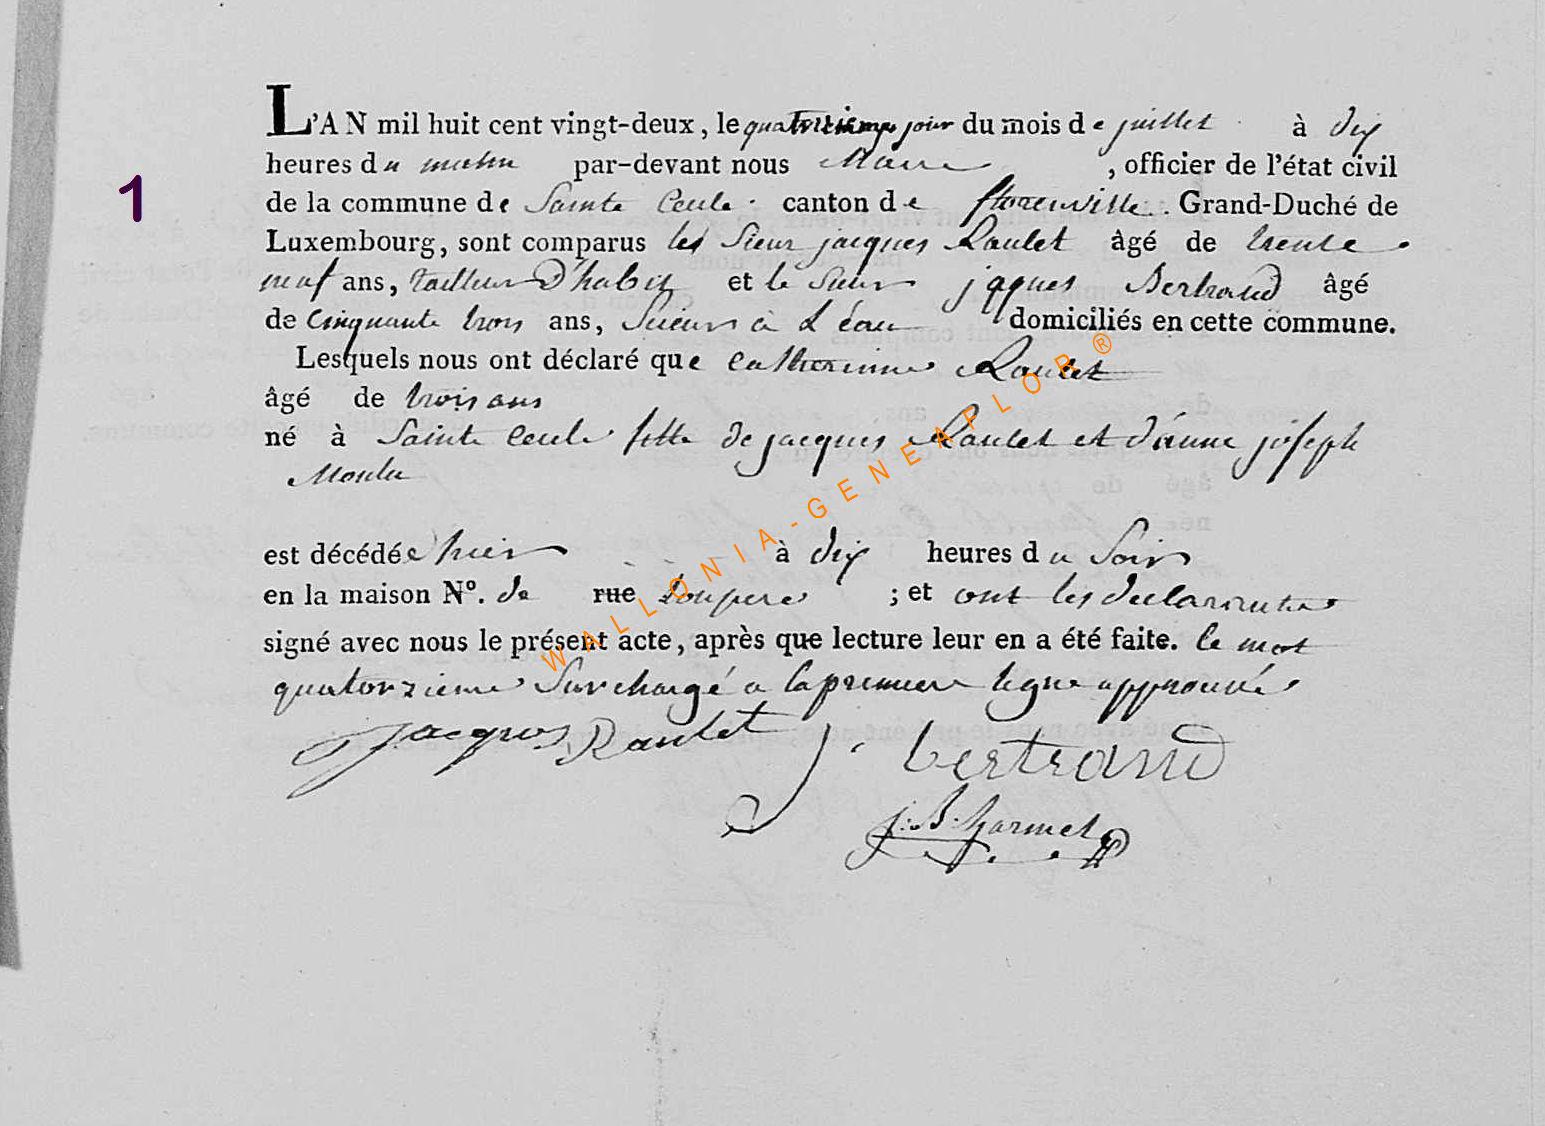 1
L'AN mil huit cent vingt-deux, le quatorzieme jour du mois de juillet à dix
heures du matin par-devant nous Maire , officier de l'état civil
de la commune de Sainte Cecile canton de florenville. Grand-Duché de
Luxembourg, sont comparus les Sieur jacques Raulet âgé de trente
neuf ans, tailleur D'habit et le Sieur jaques Bertrand âgé
de Cinquante trois ans, Scieur à L'eau domiciliés en cette commune.
Lesquels nous ont déclaré que Catherinne Raulet
âgé de trois ans
né à Sainte Cecile fille de jacques Raulet et d'anne joseph
Moulu
est décédée hier à dix heures du Soir
en la maison N°. de rue ; et ont les declarants
signé avec nous le présent acte, après que lecture leur en a été faite. le mot
quatorzieme Surchargé a la premiere ligne approuvée
jacques Raulet j. bertrand
j. B.
WALLONIA-GENEAPLOR ®